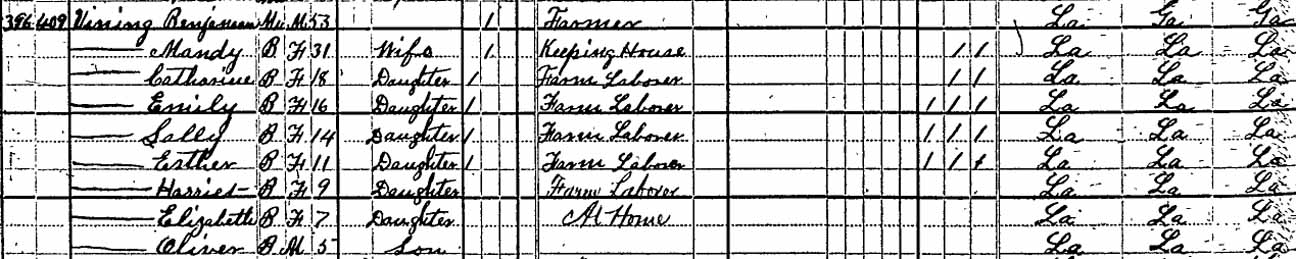 396 409 Vining Benjamin Mu M 53 1 Farmer La Ga Ga
—— Mandy B F 31 Wife 1 Keeping House 1 1 La La La
—— Catharine B F 18 Daughter 1 Farm Laborer 1 1 La La La
—— Emily B F 16 Daughter 1 Farm Laborer 1 1 1 La La La
—— Sally B F 14 Daughter 1 Farm Laborer 1 1 1 La La La
—— Esther B F 11 Daughter 1 Farm Laborer 1 1 1 La La La
—— Harriet B F 9 Daughter Farm Laborer La La La
—— Elizabeth B F 7 Daughter At Home La La La
—— Oliver B M 5 Son La La La